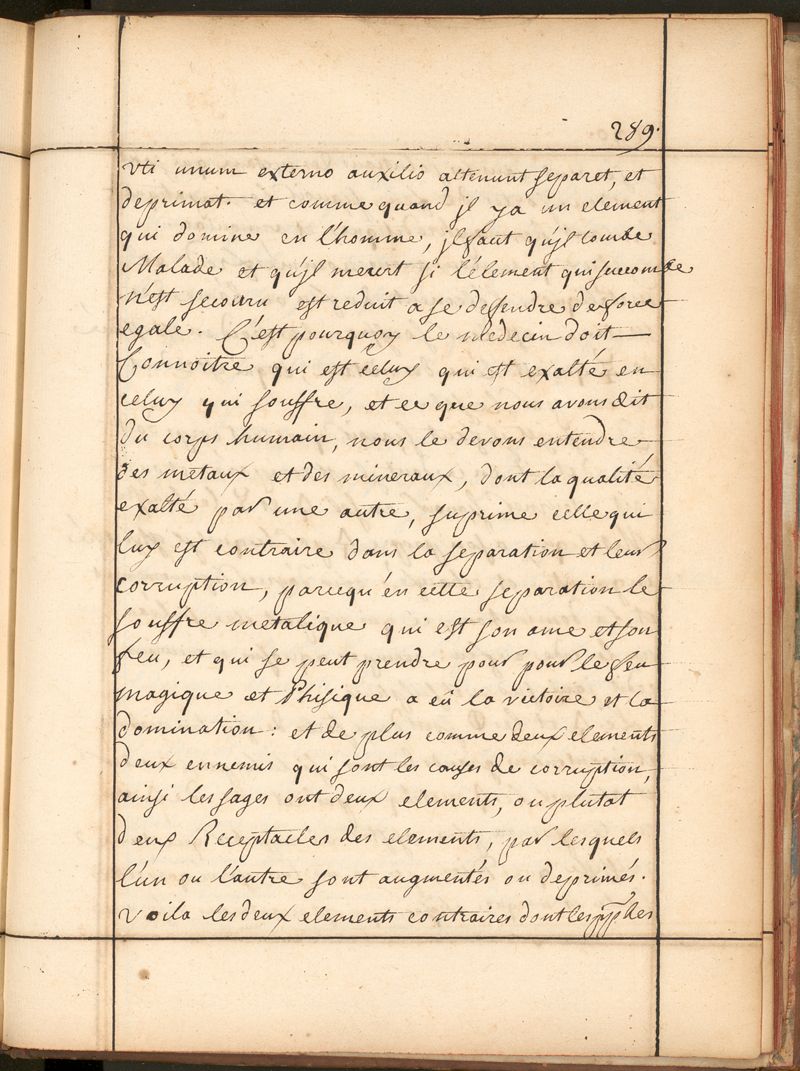 289.
vti unum externo auxilio attenunt separet, et
deprimat. et comme quand jl ya un element
qui domine en l'homme, jlfaut qu'jl tombe
Malade et qu'jl meurt si l'élement qui succombe
n'est secouru est reduit a se deffendre de force
egale. C'est pourquoy le medecin doit —
Connoitre qui est celuy qui est exalté en
celuy qui souffre, et ce que nous avons dit
du corps humain, nous le devons entendre
des metaux et des mineraux, dont la qualité
exalté par une autre, suprime celle qui
luy est contraire dans la separation et leur
corruption, parcequ'en cette separation le
souffre metalique qui est son ame et son
feu, et qui se peut prendre pour pour le feu
magique et Phisique a eü la victoire et la
domination: et de plus comme deux elements
deux ennemis qui sont les causes de corruption,
ainsi les sages ont deux elements, ou plutat
deux Receptacles des elements, par lesquels
l'un ou l'autre sont augmentés ou deprimés.
voila les deux elements contraires dont les pp̃les